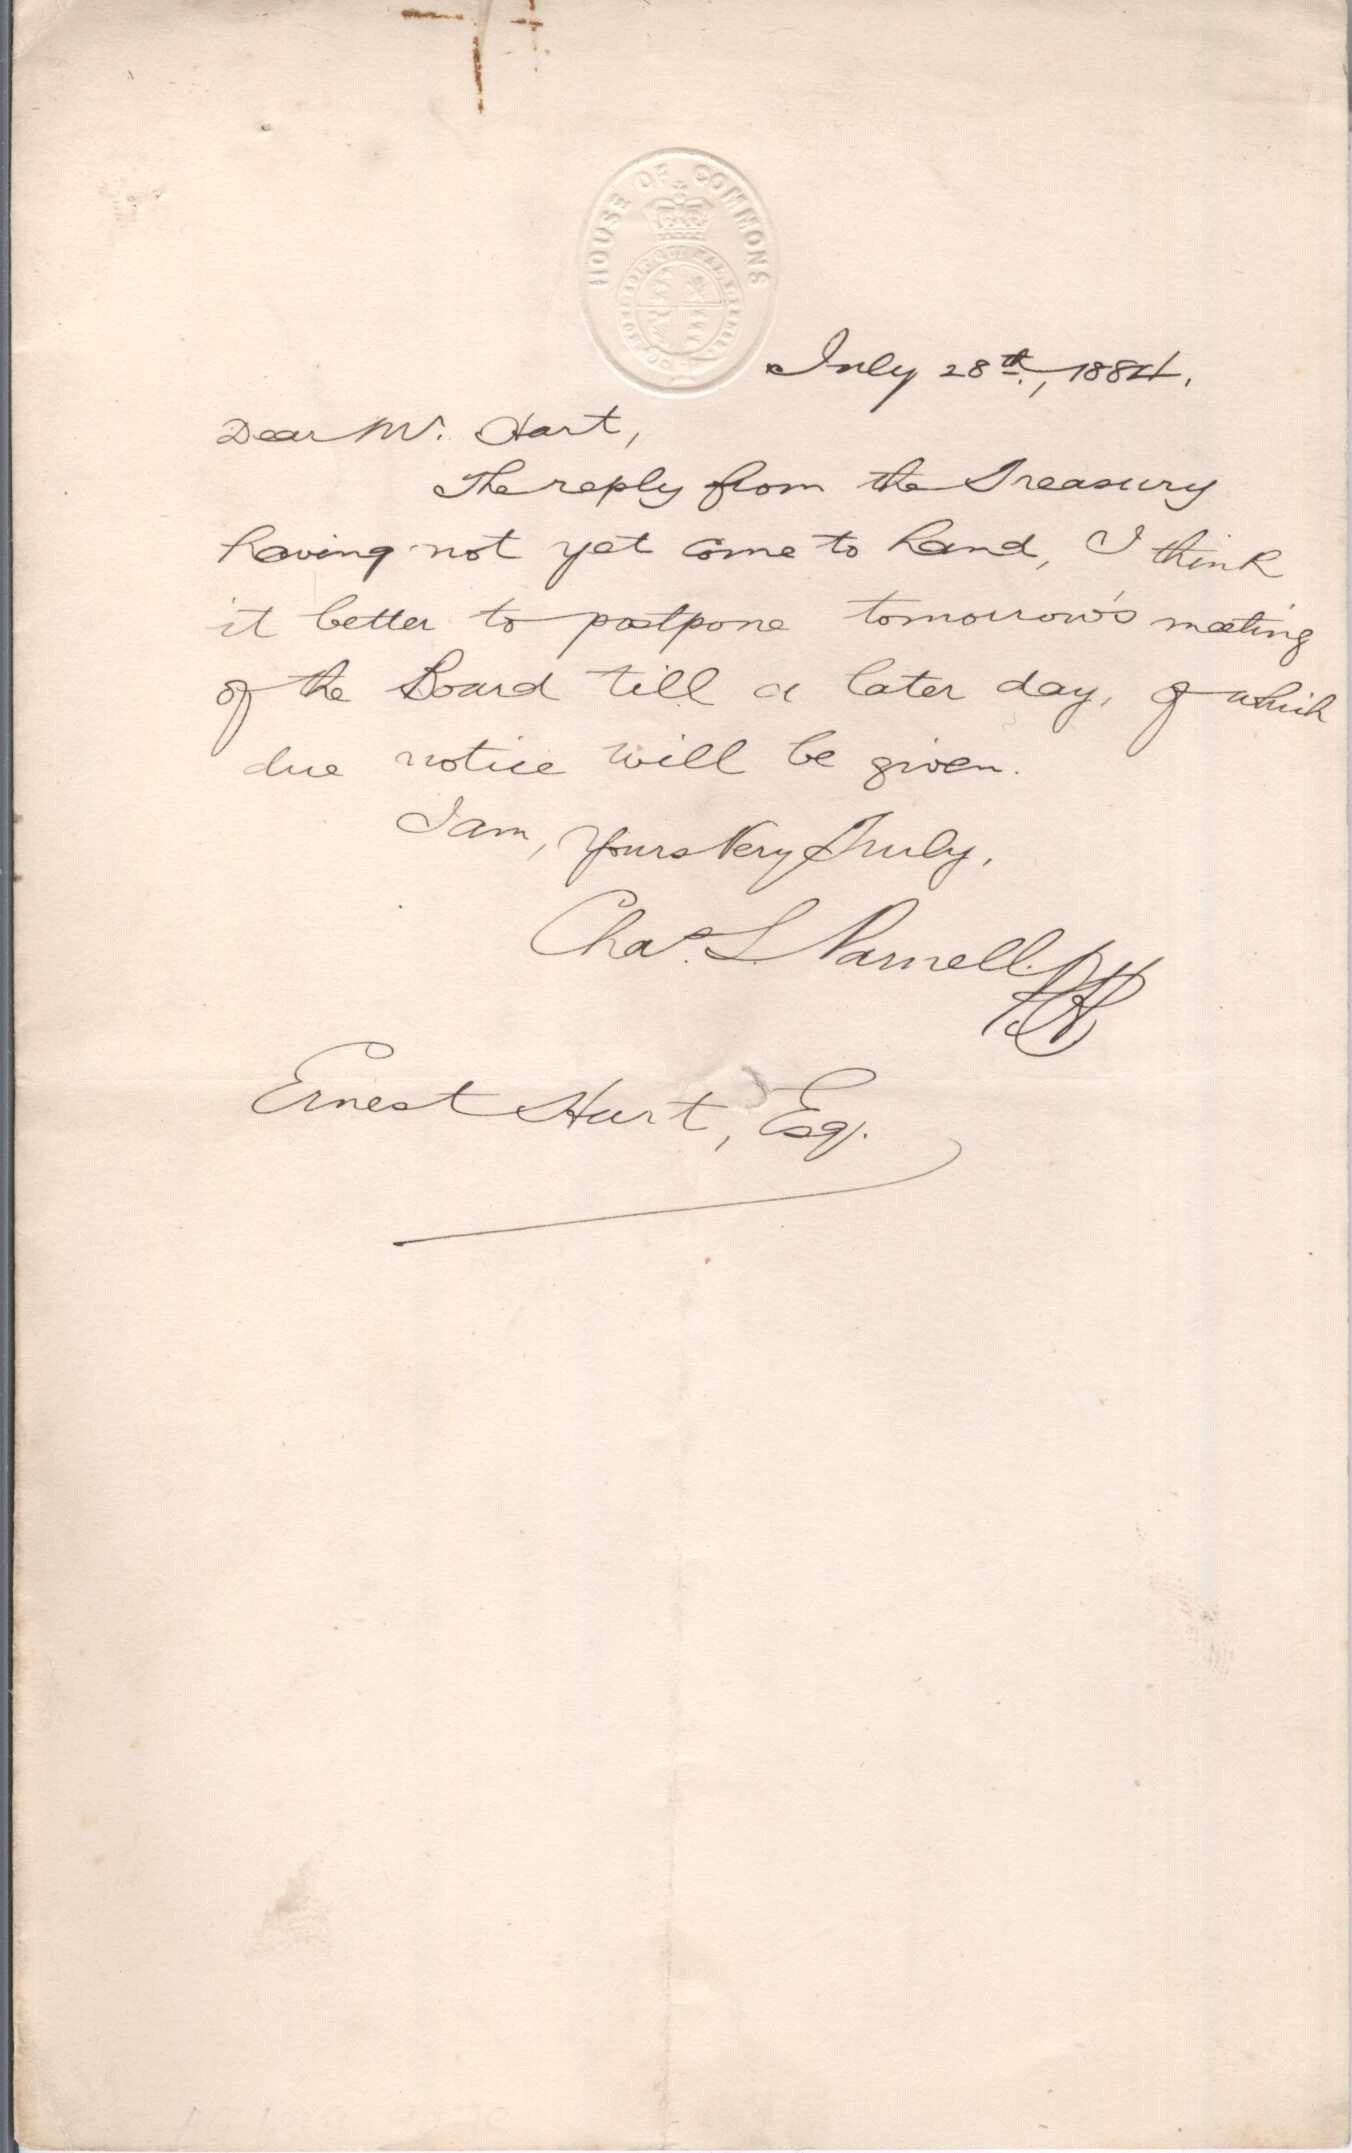 HOUSE OF COMMONS
HONI SOIT QUI MAL Y PENSE
July 28th, 1884.
Dear Mr. Hart,
The reply from the Treasury
having not yet come to hand, I think
it better to postpone tomorrow's meeting
of the Board till a later day, of which
due notice will be given.
I am, Yours Very Truly,
Chas. S. Parnell.
Ernest Hart, Esq.